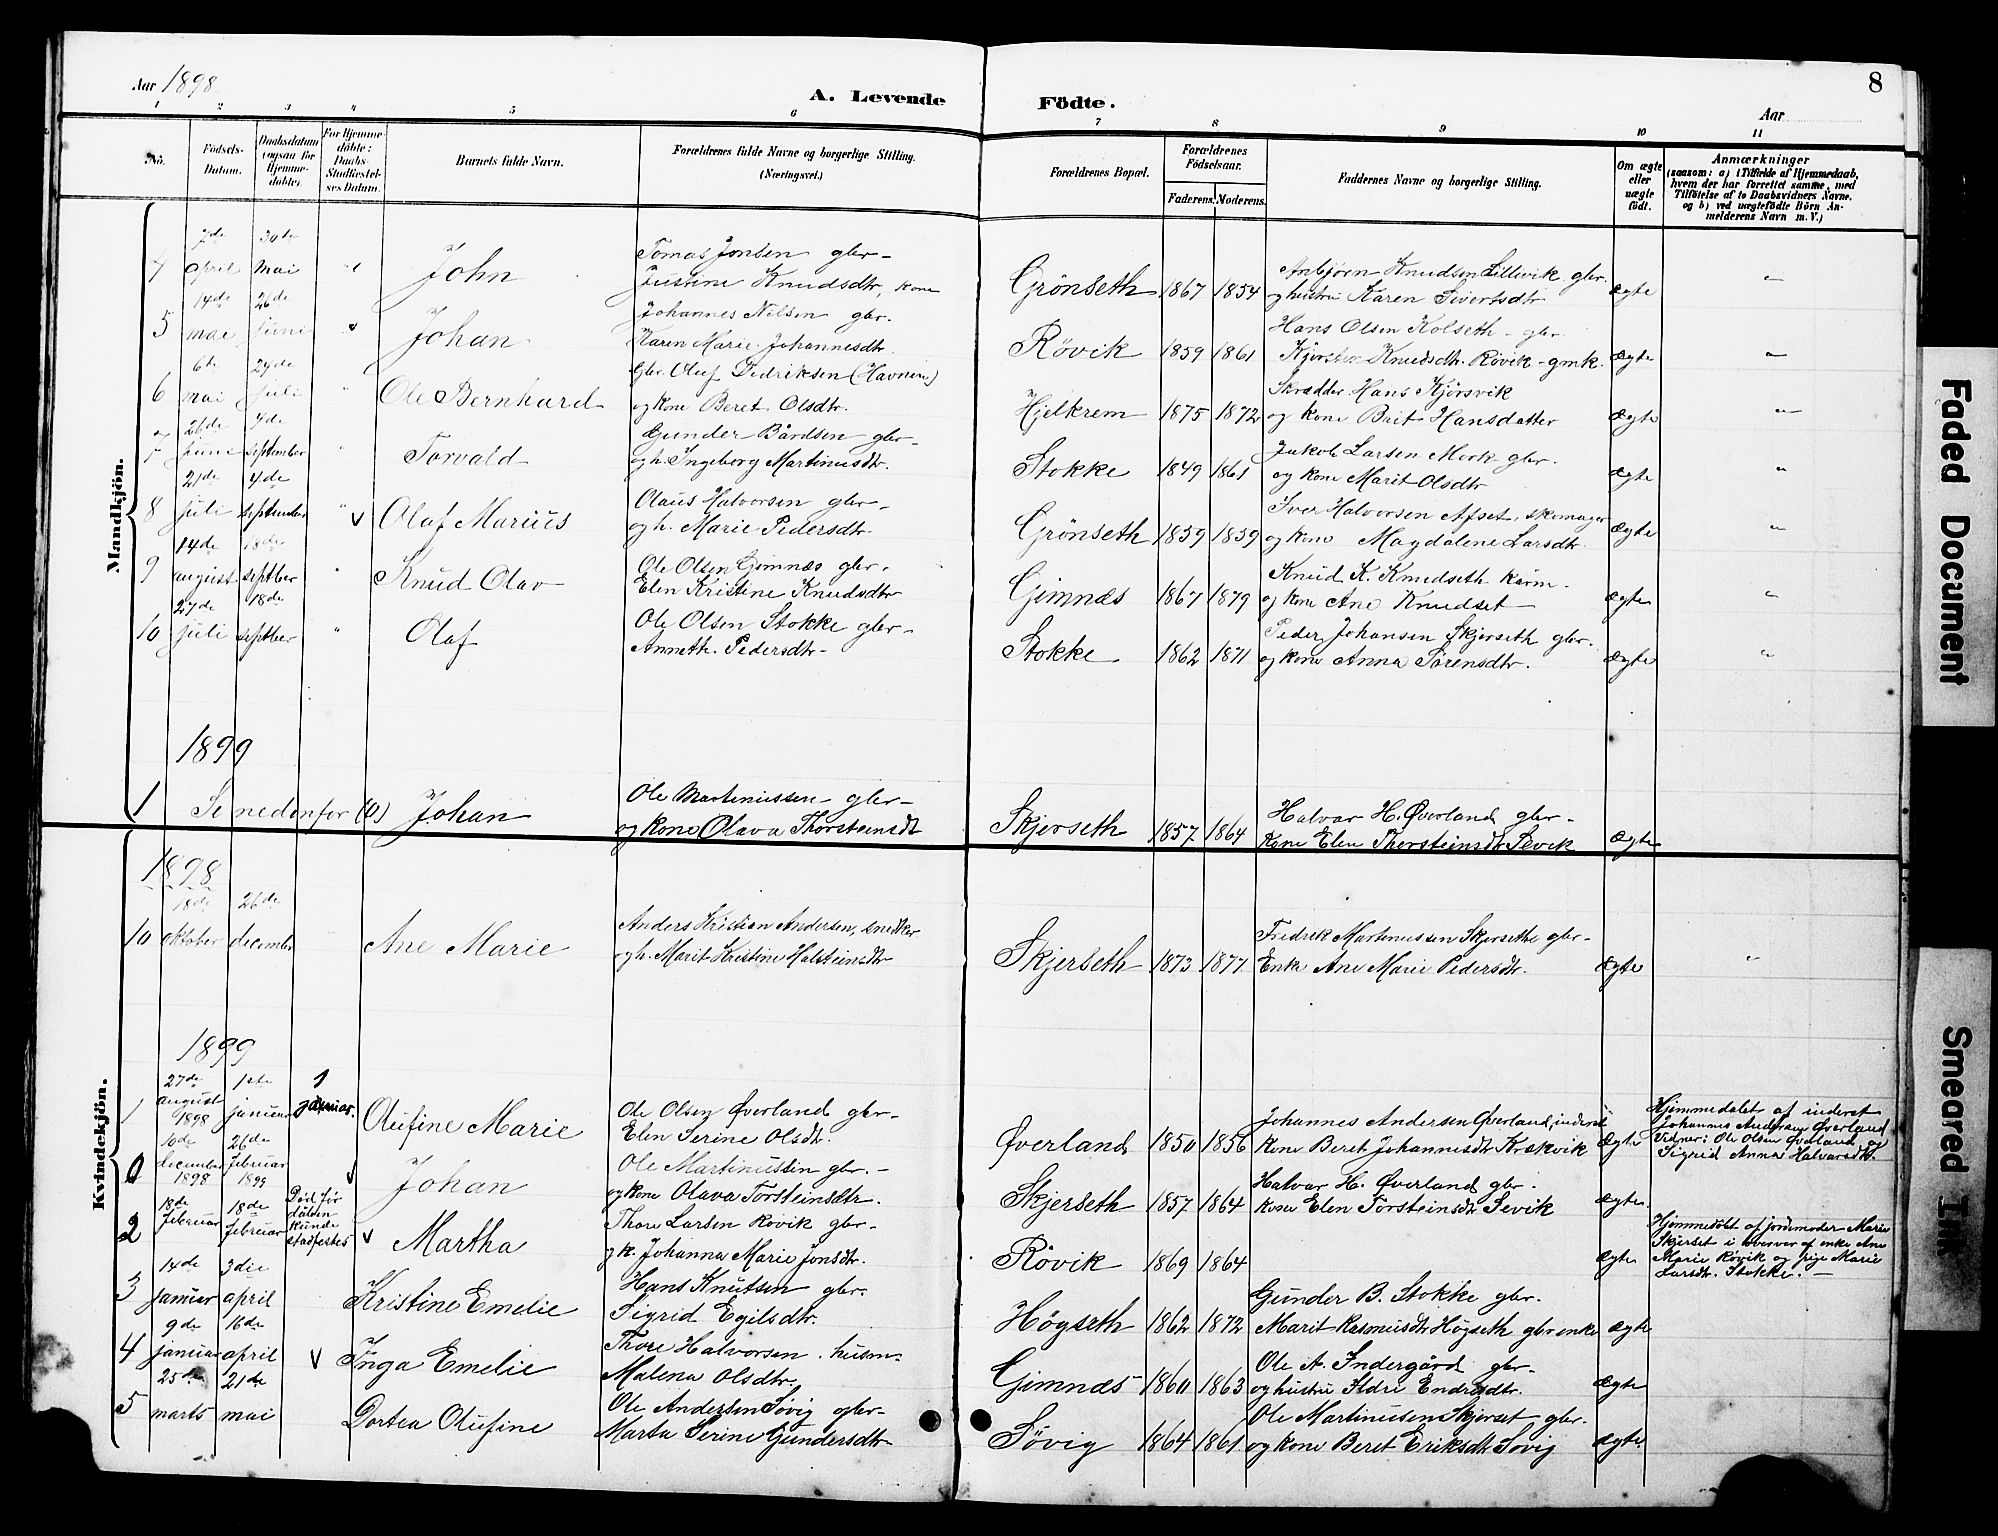 Aar 1898
A. Levende Födte.
Aar
8
1 2 3 4 5 6 7 8 9 10 11
No.
Födsels-Datum.
Daabsdatum (ogsaa för Hjemme-döbte).
For Hjemme-döbte: Daabs-Stadfæstel-ses Datum.
Barnets fulde Navn.
Forældrenes fulde Navne og borgerlige Stilling.
(Næringsvei.)
Forældrenes Bopæl.
Forældrenes Födselsaar.
Faderens. Moderens.
Faddernes Navne og borgerlige Stilling.
Om ægte eller uægte födt.
Anmærkninger
(saasom: a) i Tilfælde af Hjemmedaab, hvem der har forrettet samme, med Tilföielse af to Daabsvidners Navne, og b) ved uægtefödte Börn An-melderens Navn m. V.)
Mandkjön.
4 7de april 30te mai " John Tomas Jonsen gbr- Justine Knudsdtr, kone Grönseth 1867 1854 Anbjørn Knudsen Lillevik gbr. og hustru Karen Sivertsdtr ægte "
5 14de mai 26de juni v Johan Johannes Nilsen gbr. Karen Marie Johannesdtr. Rövik 1859 1861 Hans Olsen Kolseth - gbr. Kjersten Knudsdtr. Røvik - gmk. ægte "
6 6te mai 24de juli " Ole Bernhard Gbr. Oluf Didriksen (Havnen) og kone Beret Olsdtr. Hjelkrem 1875 1872 Skrædder Hans Kjörsvik og kone Brit Hansdatter ægte "
7 26de juni 4de september " Torvald Gunder Bårdsen gbr- og h. Ingeborg Martinusdtr. Stokke 1849 1861 Jakob Larsen Mork gbr. og kone Marit Olsdtr ægte "
8 21de juli 4de september " v Olaf Marius Olaus Halvorsen gbr- og h. Marie Pedersdtr. Grönseth 1859 1859 Iver Halvorsen Afset, skomager og kone Magdalene Larsdtr. ægte "
9 14de august 18de septber " Knud Olav Ole Olsen Gimnæs gbr. Elen Kristine Knudsdtr Gimnæs 1867 1879 Knud K. Knudseth og kone Ane Knudset ægte "
10 27de juli 18de septber " Olaf Ole Olsen Stokke gbr- Anneth. Pedersdtr- Stokke 1862 1871 Peder Johansen Skjerseth gbr. og kone Anna Sörensdtr. ægte "
1899
1 Se nedenfor (0) Johan Ole Martinussen gbr- og kone Olava Thorsteinsdt Skjerseth 1857 1864 Halvar H. Øverland gbr- Kone Elen Thorsteinsdtr Sevik ægte
Kvindekjön.
1898
10 18de oktober 26de december Ane Marie Anders Kristian Andersen, snedker og h. Marit Kristine Halsteinsdtr Skjerseth 1873 1877 Fredrik Martinussen Skjerseth gbr- Enke Ane Marie Pedersdtr. ægte "
1899
1 27de august 1898 1ste januar 1 januar. Olufine Marie Ole Olsen Øverland gbr- Elen Serine Olsdtr. Øverland 1850 1856 Johannes Andersen Øverland, inderst kone Beret Johannesdtr Kraskvik ægte Hjemmedøbt af inderst Johannes Andersen Øverland Vidner: Ole Olsen Øverland og Sigrid Anna Halvarsdtr.
0 10de december 1898 26de februar 1899 v Johan Ole Martinussen gbr.- og kone Olava Torsteinsdtr. Skjerseth 1857 1864 Halvar H. Øverland gbr- Kone Elen Torsteinsdtr Sevik ægte.
2 18de februar 18de februar Død før dåben kunde stadfestes v Martha Thore Larsen Rövik gbr- og k. Johanna Marie Jonsdtr. Rövik 1869 1864 ægte Hjemmedöbt af jordmoder Marie Skjerset i overvær af enke Ane Marie Røvik og pige Marie Larsdtr. Stokke. -
3 14de januar 3die april Kristine Emelie Hans Knutsen gbr. Sigrid Egilsdtr. Högseth 1862 1872 Gunder B. Stokke gbr. Marit Rasmusdtr Högseth gbr enke ægte
4 9de januar 16de april v Inga Emelie Thore Halvorsen husm- Malena Olsdtr. Gimnæs 1860 1863 Ole A. Indergård gbr- og hustru Ildri Endresdtr. ægte
5 25de marts 21de mai Dortea Olufine Ole Andersen Søvig gbr- Marta Serine Gundersdtr- Sövig 1864 1861 Ole Martinussen Skjerset gbr. og kone Beret Eriksdtr Søvig ægte.
Faded Document
Smeared Ink